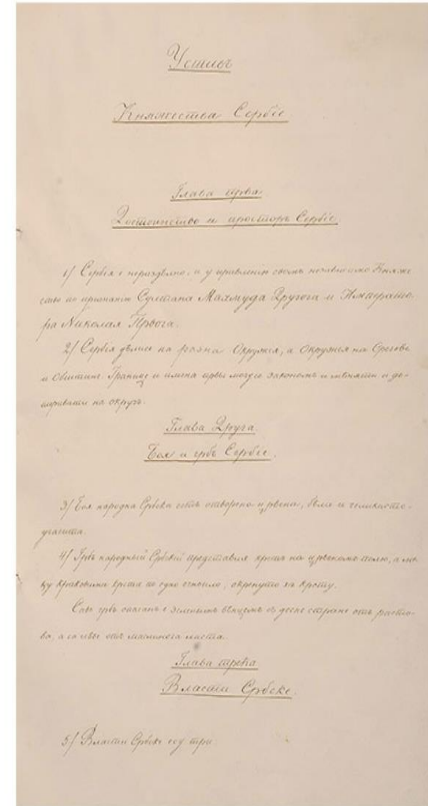 Уставъ
Княжества Сербіе
Глава прва.
Достоинство и просторъ Сербіе.
1/ Сербія є нераздѣлно, и у правленію своме независимо Княже-
ство по признанію Султана Махмуда Другога и Императо-
ра Николая Првога.
2/ Сербія дѣлисе на разна Окружія, а Окружія на Срезове
и Обштине. Границе и имена ови могусе закономъ измѣнити и
на округъ.
Глава Друга
Боя и грбъ Сербіе.
3/ Боя народна Србска єсть отворено црвена, бѣла и челикасто-
угасита.
4/ Грбъ народный Србскій представля крстъ на црвеному полю, а ме-
ђу краковима крста по едно огнило, окренуто къ крсту.
Савъ грбъ опасанъ є зеленымъ вѣнцемъ съ десне стране отъ растовог
а съ лѣве отъ маслинога листа.
Глава трећа
Власти Србске.
5/ Власти Србске єсу три